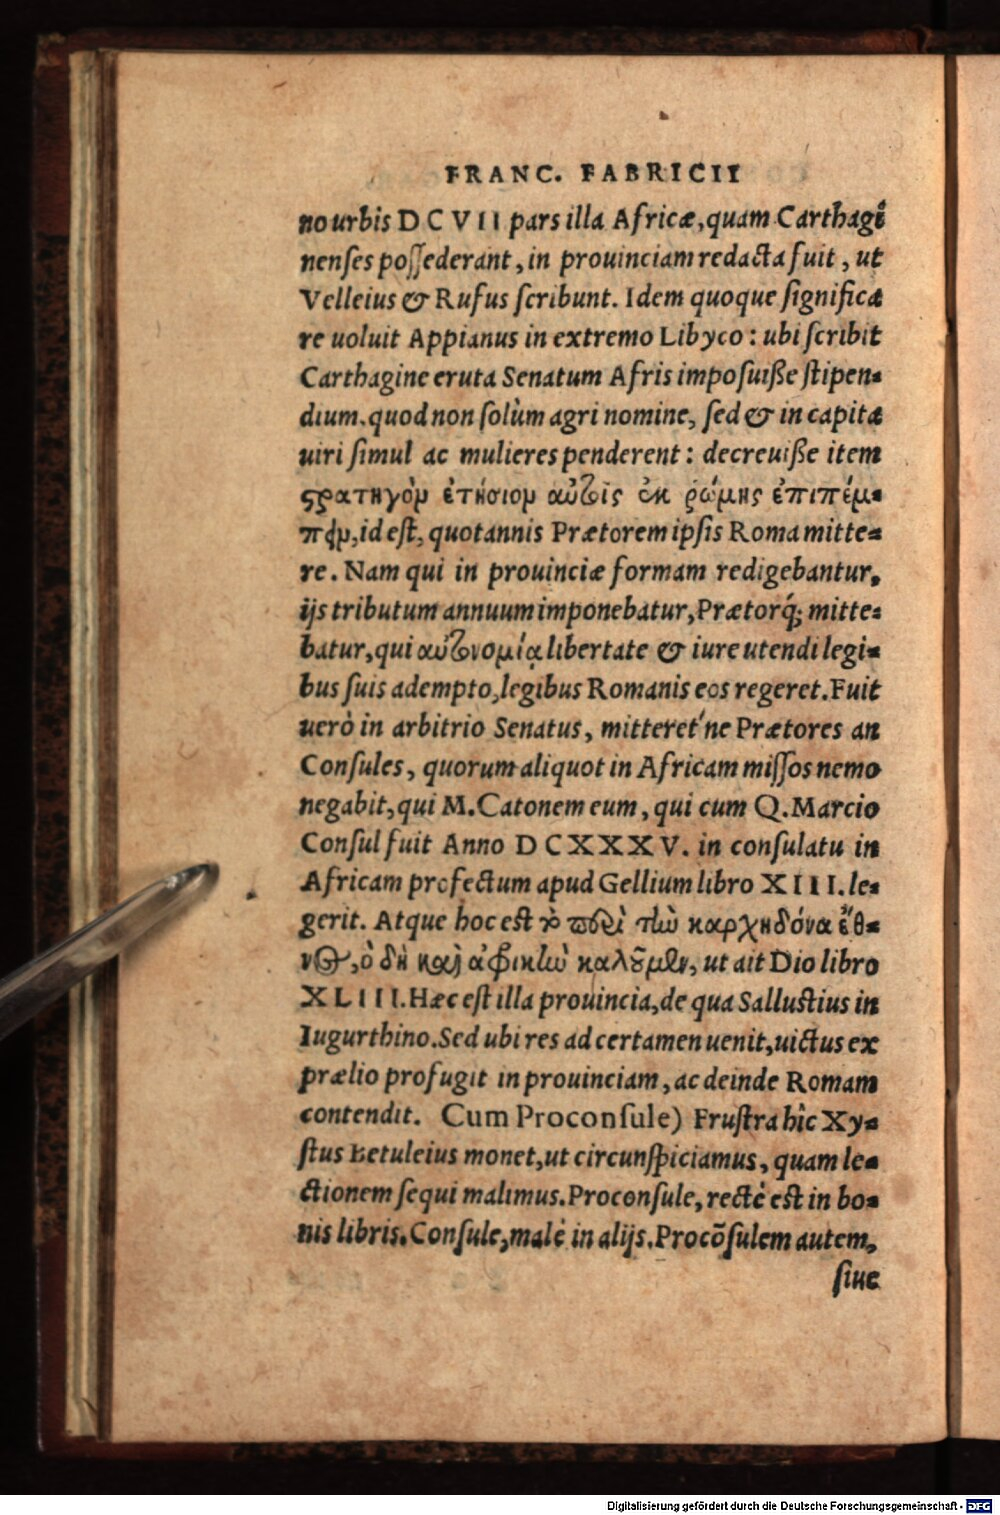 FRANC. FABRICII
no urbis DCVII pars illa Africæ, quam Carthagĩ
nenses possederant, in prouinciam redacta fuit, ut
Velleius & Rufus scribunt. Idem quoque significa
re uoluit Appianus in extremo Libyco: ubi scribit
Carthagine eruta Senatum Afris imposuiße stipen-
dium. quod non solùm agri nomine, sed & in capita
uiri simul ac mulieres penderent: decreuiße item
ςρατηγὸν ἐτήσιον αὐτοῖς ἐκ ῥώμης ἐπιπέμ-
πειν, id est, quotannis Prætorem ipsis Roma mitte-
re. Nam qui in prouinciæ formam redigebantur,
ijs tributum annuum imponebatur, Prætorq́; mitte-
batur, qui αὐτονομίᾳ libertate & iure utendi legi-
bus suis adempto, legibus Romanis eos regeret. Fuit
uerò in arbitrio Senatus, mitteret'ne Prætores an
Consules, quorum aliquot in Africam missos nemo
negabit, qui M. Catonem eum, qui cum Q. Marcio
Consul fuit Anno DCXXXV. in consulatu in
Africam profectum apud Gellium libro XIII. le-
gerit. Atque hoc est τὸ περὶ τὴν καρχηδόνα ἔθ-
νος, ὃ δὴ καὶ ἀφρικὴν καλοῦμεν, ut ait Dio libro
XLIII. Hæc est illa prouincia, de qua Sallustius in
Iugurthino. Sed ubi res ad certamen uenit, uictus ex
prælio profugit in prouinciam, ac deinde Romam
contendit. Cum Proconsule) Frustra hîc Xy-
stus Betuleius monet, ut circunspiciamus, quam le-
ctionem sequi malimus. Proconsule, rectè est in bo-
nis libris. Consule, malè in alijs. Procõsulem autem,
siue
Digitalisierung gefördert durch die Deutsche Forschungsgemeinschaft - DFG